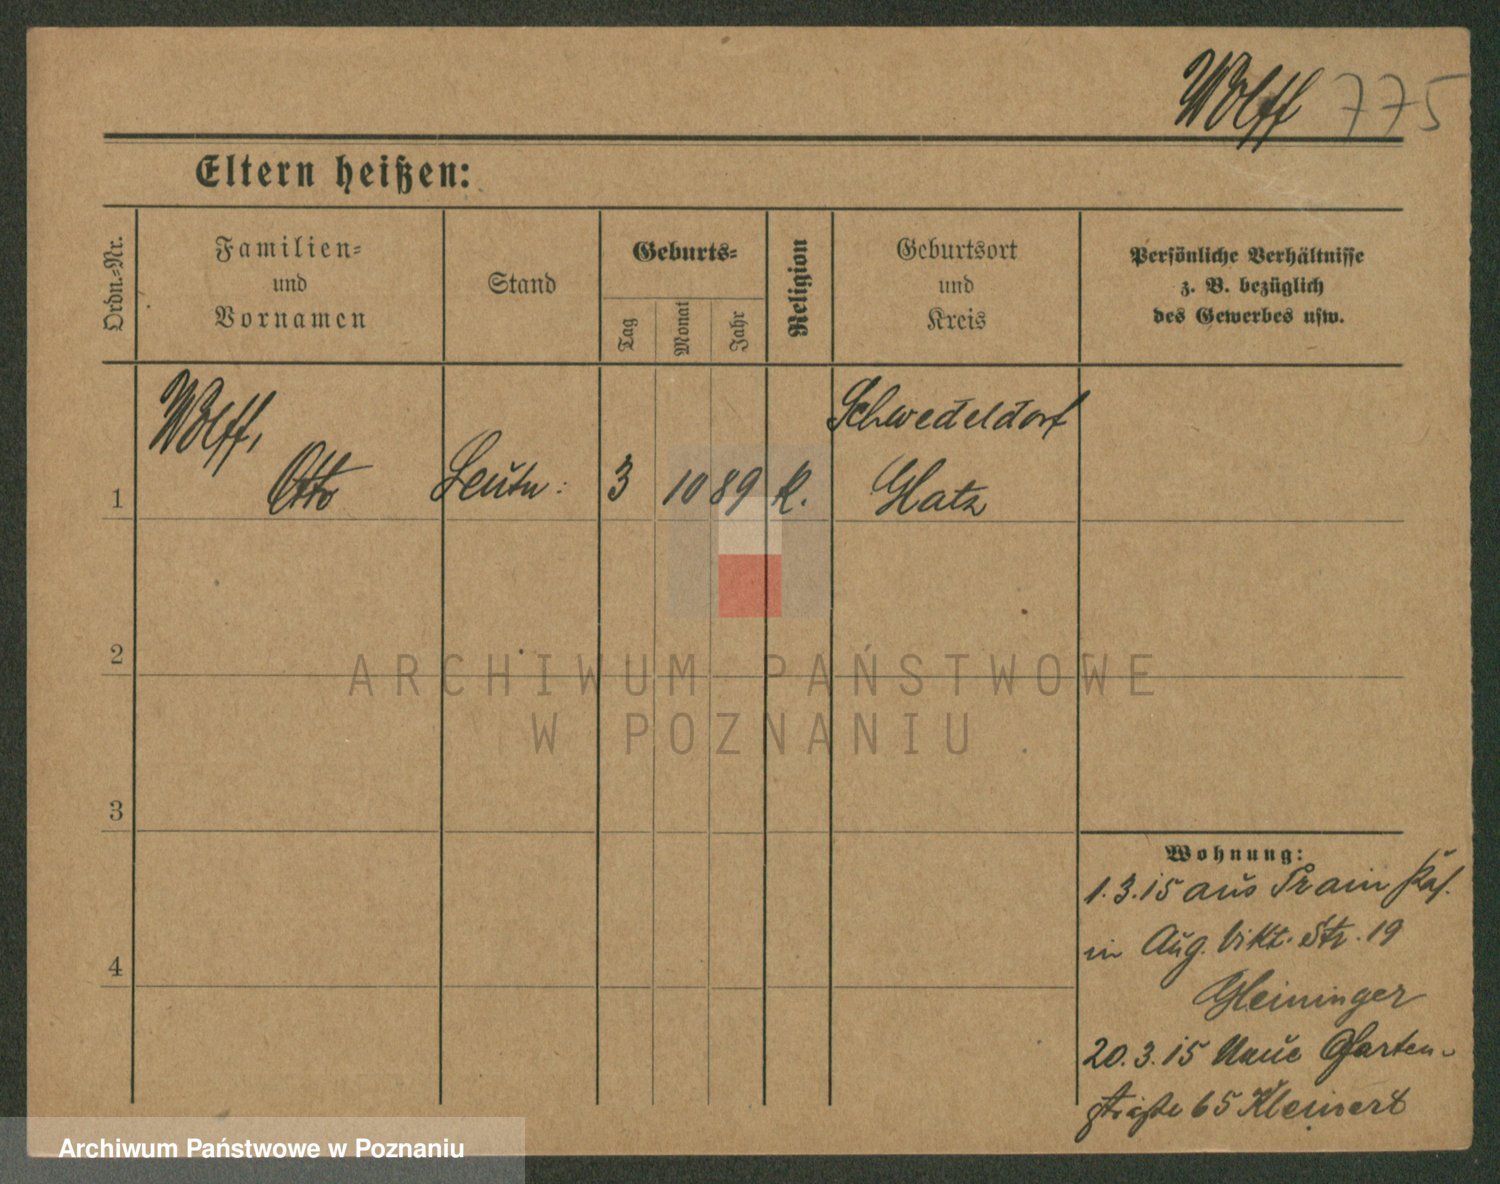 Wolff 775
Eltern heißen:
Ordn.=Nr.
Familien=
und
Vornamen
Stand
Geburts=
Tag
Monat
Jahr
Religion
Geburtsort
und
Kreis
Persönliche Verhältnisse
z. B. bezüglich
des Gewerbes usw.
Wolff,
Schwedeldorf
1 Otto Leutn: 3 10 89 K. Glatz
2
ARCHIWUM PAŃSTWOWE
W POZNANIU
3
Wohnung:
1.3.15 aus Train Kas.
in Aug. Vikt. Str. 19
4
Gleininger
20.3.15 Neue Garten-
straße 65 Kleinert
Archiwum Państwowe w Poznaniu